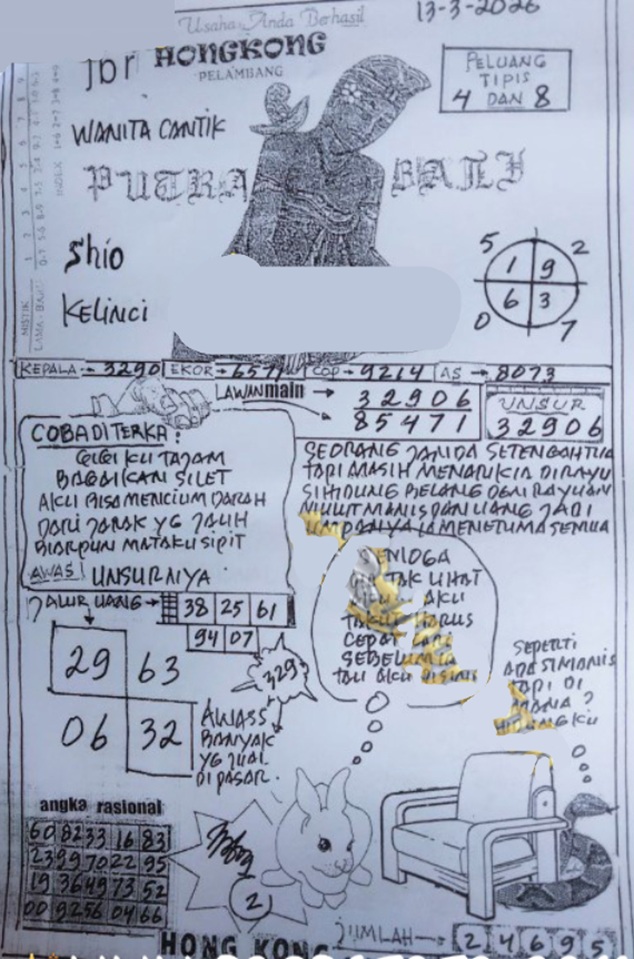 Usaha Anda Berhasil
13-3-2026
JPr HONGKONG
PELAMBANG
PELUANG
TIPIS
4 DAN 8
WANITA CANTIK
PUTRA BALI
Shio
Kelinci
5 2
1 9
6 3
0 7
KEPALA 3290 EKOR 6571 COP 9214 AS 8073
LAWAN main 32906
85471
UNSUR
32906
COBA DITERKA:
GIGI KU TAJAM
BAGAIKAN SILET
AKU BISA MENCIUM DARAH
DARI JARAK YG JAUH
BIARPUN MATAKU SIPIT
AWAS UNSURNYA
SEORANG JANDA SETENGAH TUA
TAPI MASIH MENARIK DIRAYU
SIHIDUNG BELANG DGN RAYUAN
MULUT MANIS DAN UANG JADI
IA MENERIMA SEMUA
JALUR UANG 38 25 61
94 07
29 63
06 32
329
AWASS
BANYAK
YG JUAL
DI PASAR.
SEMOGA
DIA TAK LIHAT
AKU
HARUS
CEPAT LARI
SEBELUM IA
TAU AKU DISINI
SEPERTI
ADA SIMANIS
TAPI DI
MANA?
angka rasional
60 8233 16 83
2399 7022 95
19 3649 73 52
00 9256 04 66
2
HONG KONG
JUMLAH 2 4 6 9 5